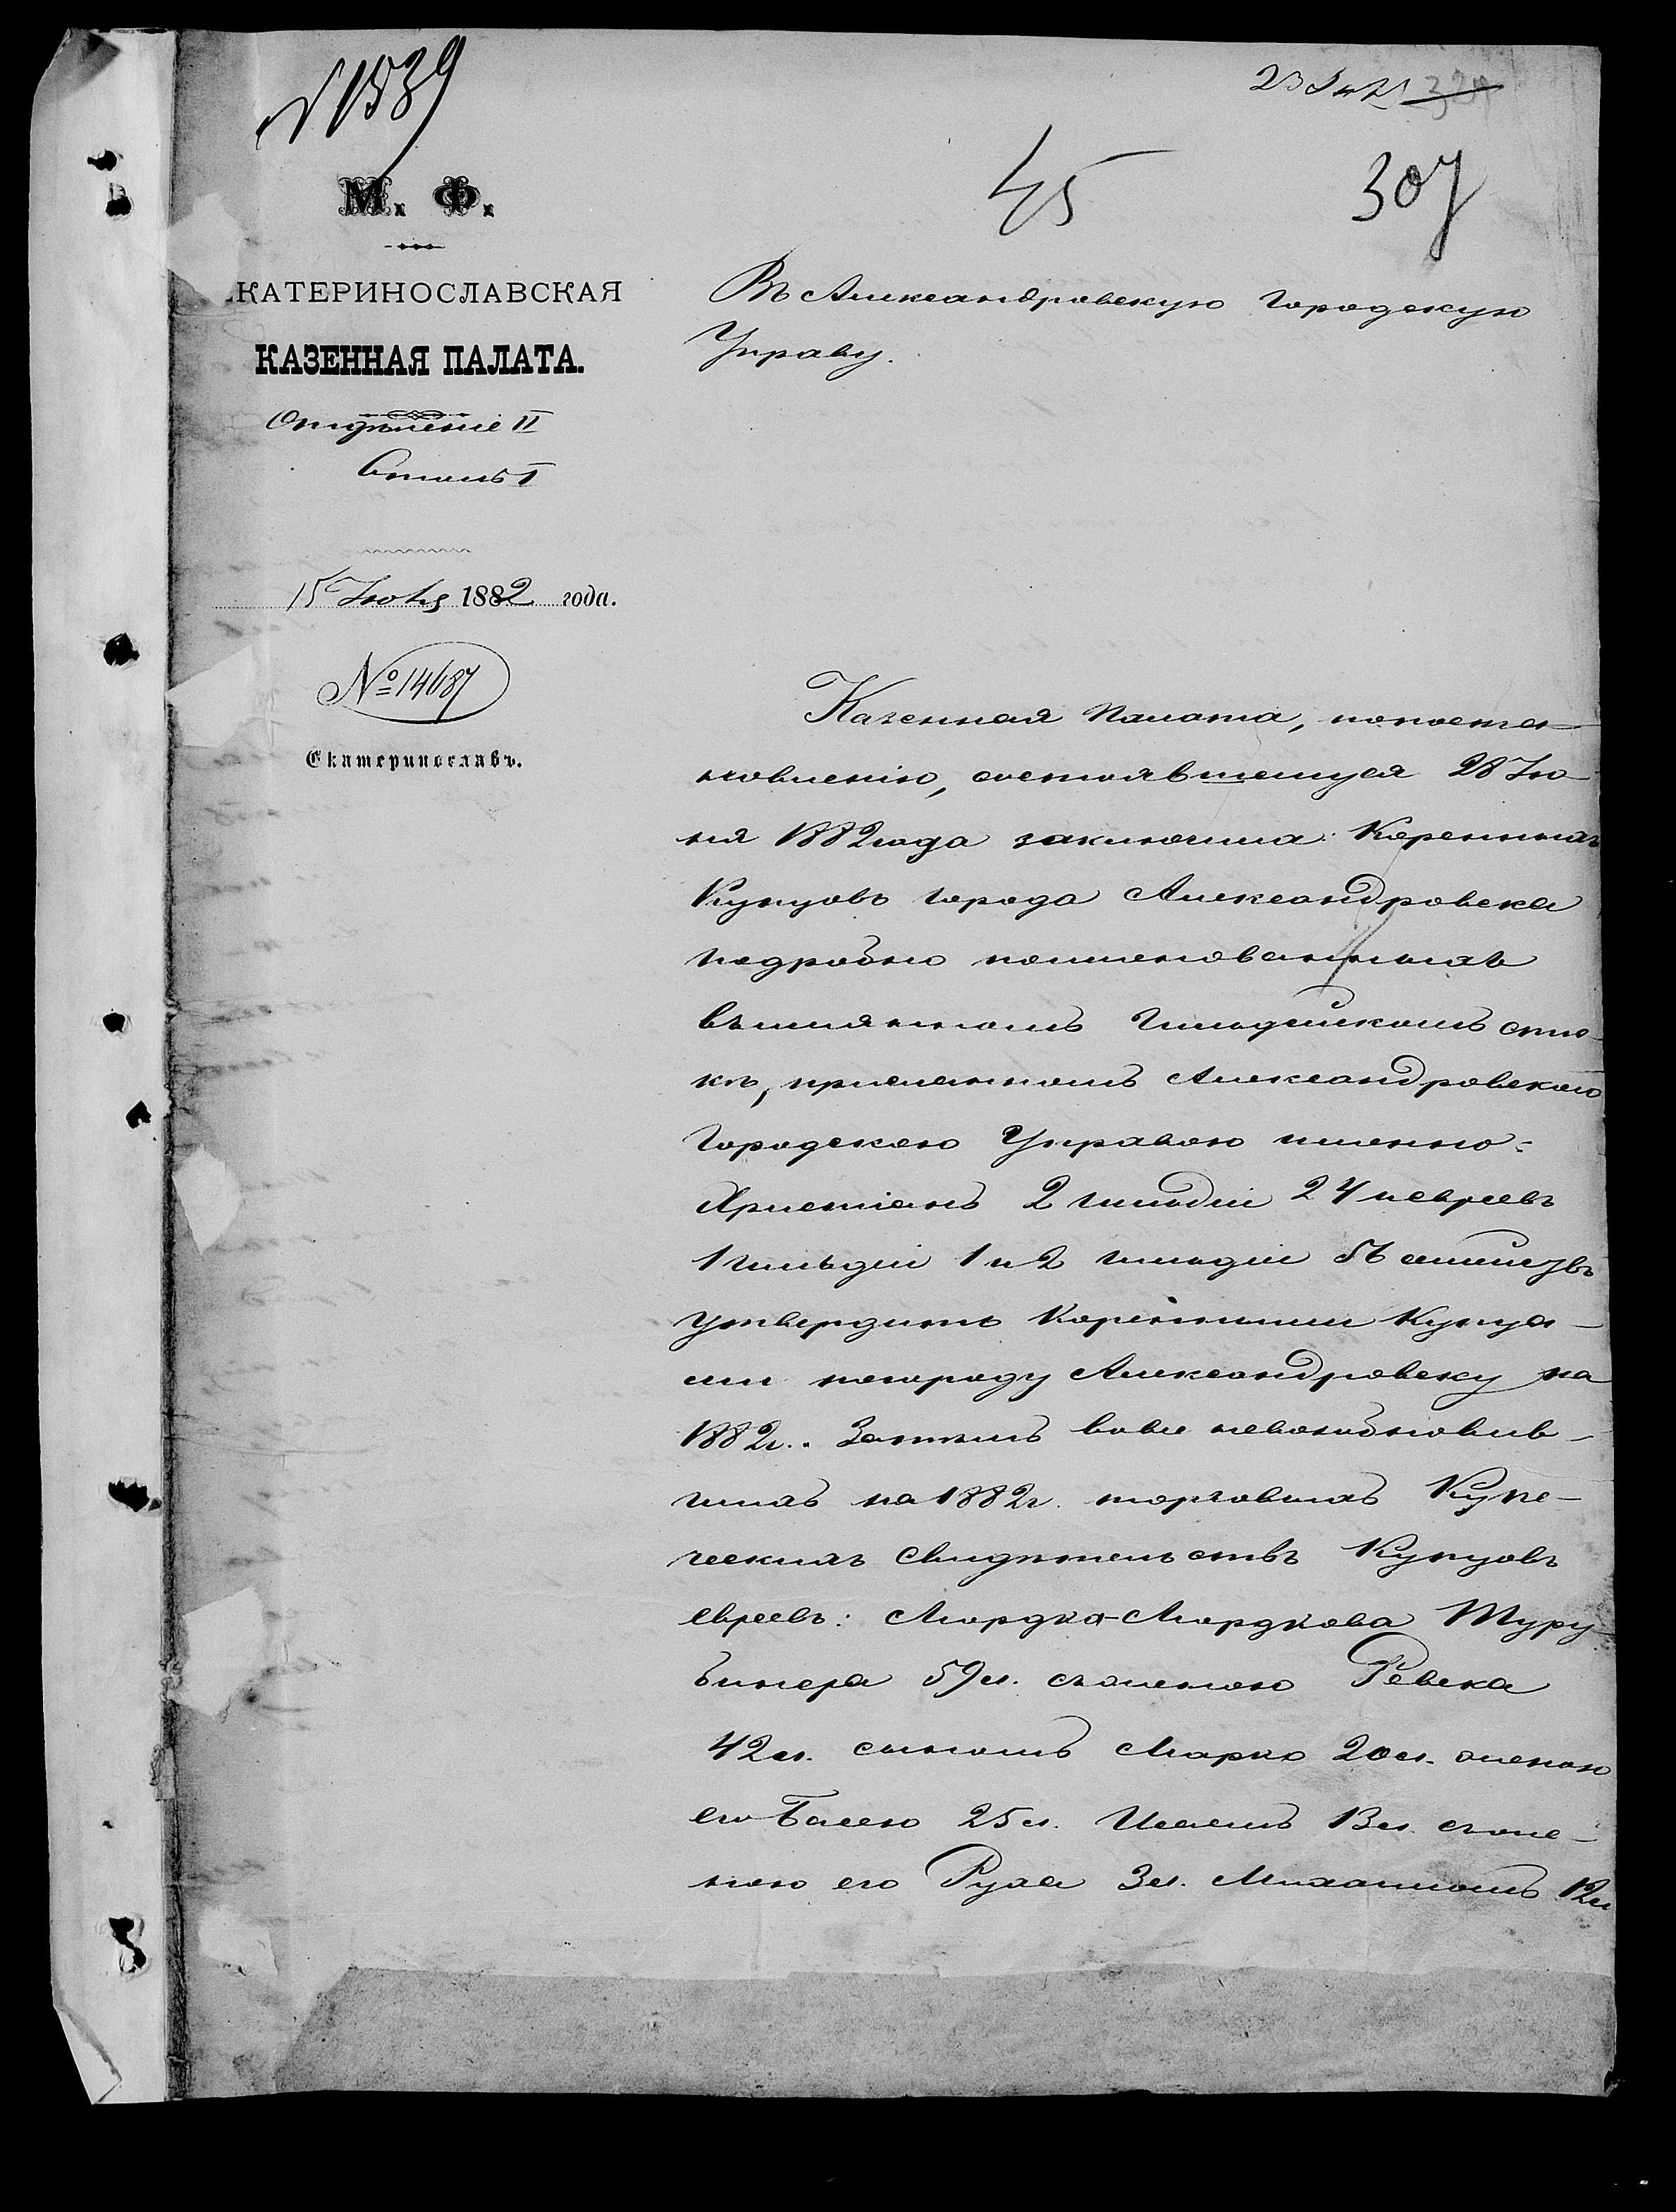 № 1539
307
45
М. Ф.
КАТЕРИНОСЛАВСКАЯ
КАЗЕННАЯ ПАЛАТА.
Отдѣленіе II
Столъ I
15 Іюля 1882 года.
№ 14687
Екатеринославъ.
Въ Александровскую Городскую
Управу.
Казенная Палата, попоста-
новленію, состоявшемуся 28 Iю-
ня 1882 года заключила: Коренныхъ
Купцовъ города Александровска
подробно поименованныхъ
въ имянномъ Гильдейскомъ спис-
кѣ, присланномъ Александровскою
Городскою Управою именно:
Христіанъ 2 гильдіи 24 иевреевъ
1 гильдіи 1 и 2 гильдіи 56 семействъ
утвердить Коренными Купца-
ми погороду Александровску на
1882 г. Затѣмъ вовсе невозобновив-
шихъ на 1882 г. торговыхъ Купе-
ческихъ Свидѣтельствъ Купцовъ
евреевъ: Мордко-Мордкова Туру-
бинера 59 л. съженою Ревека
42 л. сыномъ Марко 20 л. женою
его Басею 25 л. 13 л. съже-
ною его Руха 3 л. 12 л